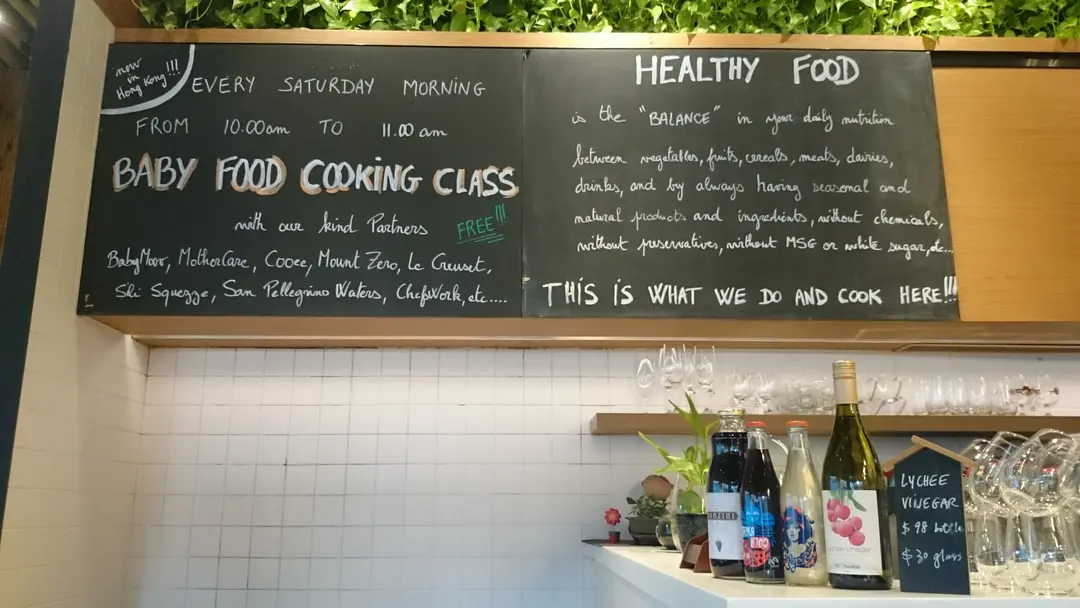 now
in
Hong Kong!!!
EVERY SATURDAY MORNING
FROM 10.00am TO 11.00 am
BABY FOOD COOKING CLASS
with our kind Partners FREE!!!
BabyMoov, MotherCare, Cooee, Mount Zero, Le Creuset,
Ski Squezze, San Pellegrino Waters, ChefWork, etc....
HEALTHY FOOD
is the "BALANCE" in your daily nutrition
between vegetables, fruits, cereals, meats, dairies,
drinks, and by always having seasonal and
natural products and ingredients, without chemicals,
without preservatives, without MSG or white sugar, etc...
THIS IS WHAT WE DO AND COOK HERE!!!
Vinegar
LYCHEE
VINEGAR
$98 bottle
$30 glass